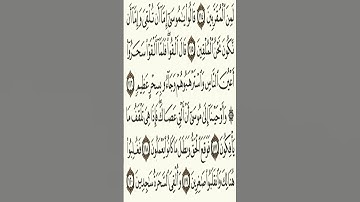 لَمِنَ الْمُقَرَّبِينَ ١١٤ قَالُوا يَا مُوسَىٰ إِمَّا أَن تُلْقِيَ وَإِمَّا أَن
نَّكُونَ نَحْنُ الْمُلْقِينَ ١١٥ قَالَ أَلْقُوا فَلَمَّا أَلْقَوْا سَحَرُوا
أَعْيُنَ النَّاسِ وَاسْتَرْهَبُوهُمْ وَجَاءُو بِسِحْرٍ عَظِيمٍ ١١٦
۞ وَأَوْحَيْنَا إِلَىٰ مُوسَىٰ أَنْ أَلْقِ عَصَاكَ فَإِذَا هِيَ تَلْقَفُ مَا
يَأْفِكُونَ ١١٧ فَوَقَعَ الْحَقُّ وَبَطَلَ مَا كَانُوا يَعْمَلُونَ ١١٨ فَغُلِبُوا
هُنَالِكَ وَانقَلَبُوا صَاغِرِينَ ١١٩ وَأُلْقِيَ السَّحَرَةُ سَاجِدِينَ ١٢٠